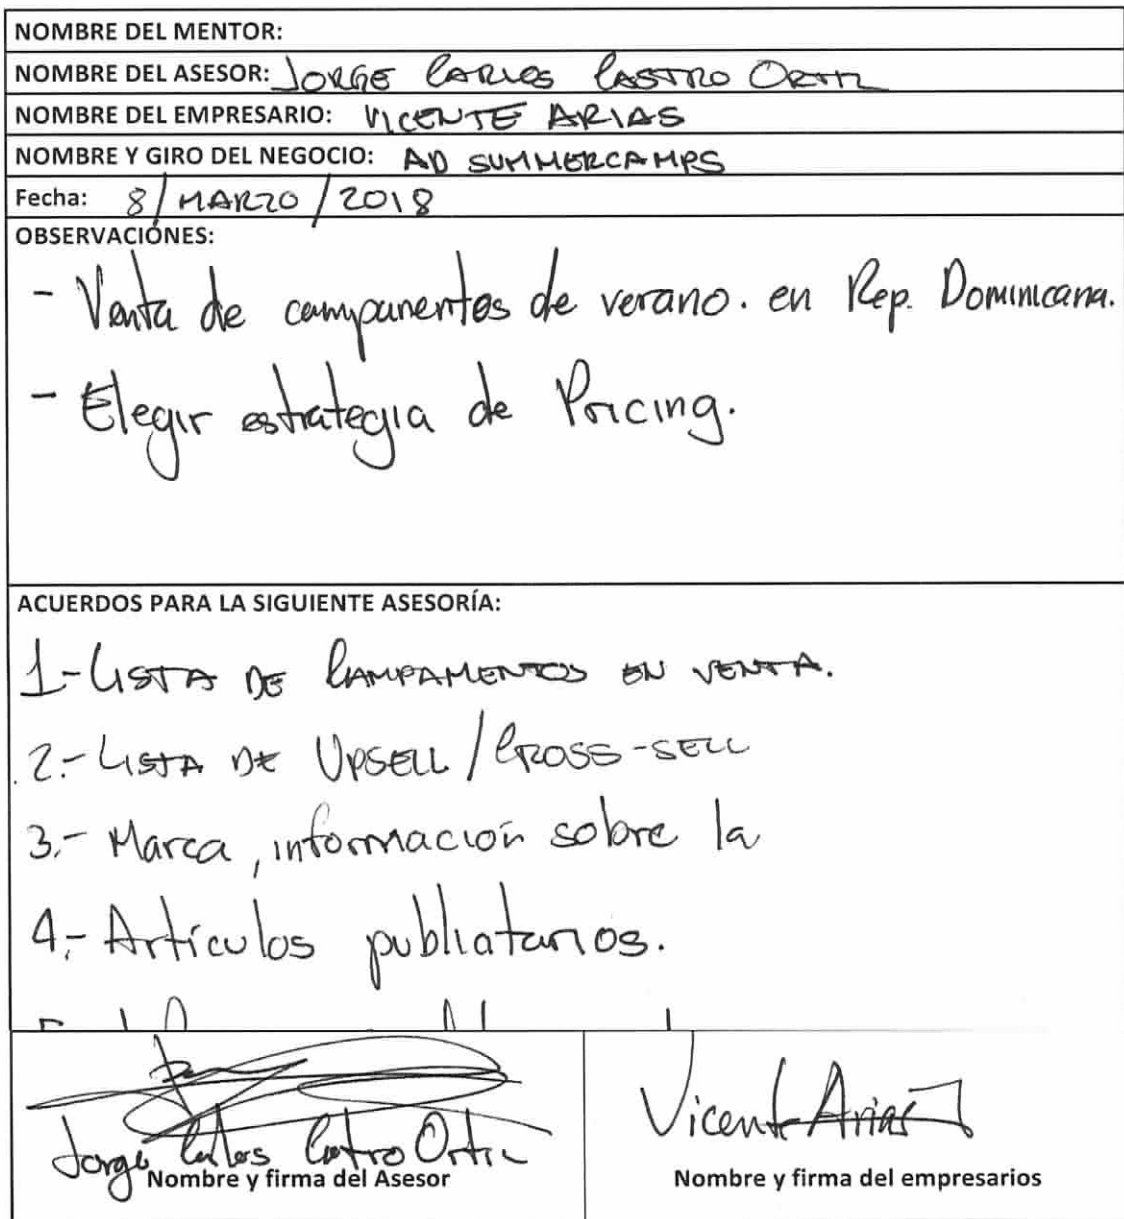 NOMBRE DEL MENTOR:
NOMBRE DEL ASESOR: JORGE CARLOS CASTRO ORTIZ
NOMBRE DEL EMPRESARIO: VICENTE ARIAS
NOMBRE Y GIRO DEL NEGOCIO: AD SUMMERCAMPS
Fecha: 8/MARZO/2018
OBSERVACIÓNES:
- Venta de campamentos de verano. en Rep. Dominicana.
- Elegir estrategia de Pricing.
ACUERDOS PARA LA SIGUIENTE ASESORÍA:
1-LISTA DE CAMPAMENTOS EN VENTA.
2.- LISTA DE UPSELL / CROSS-SELL
3.- Marca, información sobre la
4.- Artículos publicitarios.
Jorge Carlos Castro Ortiz
Nombre y firma del Asesor
Vicente Arias
Nombre y firma del empresarios